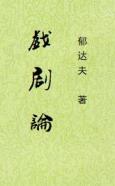 戲剧論
郁达夫 著